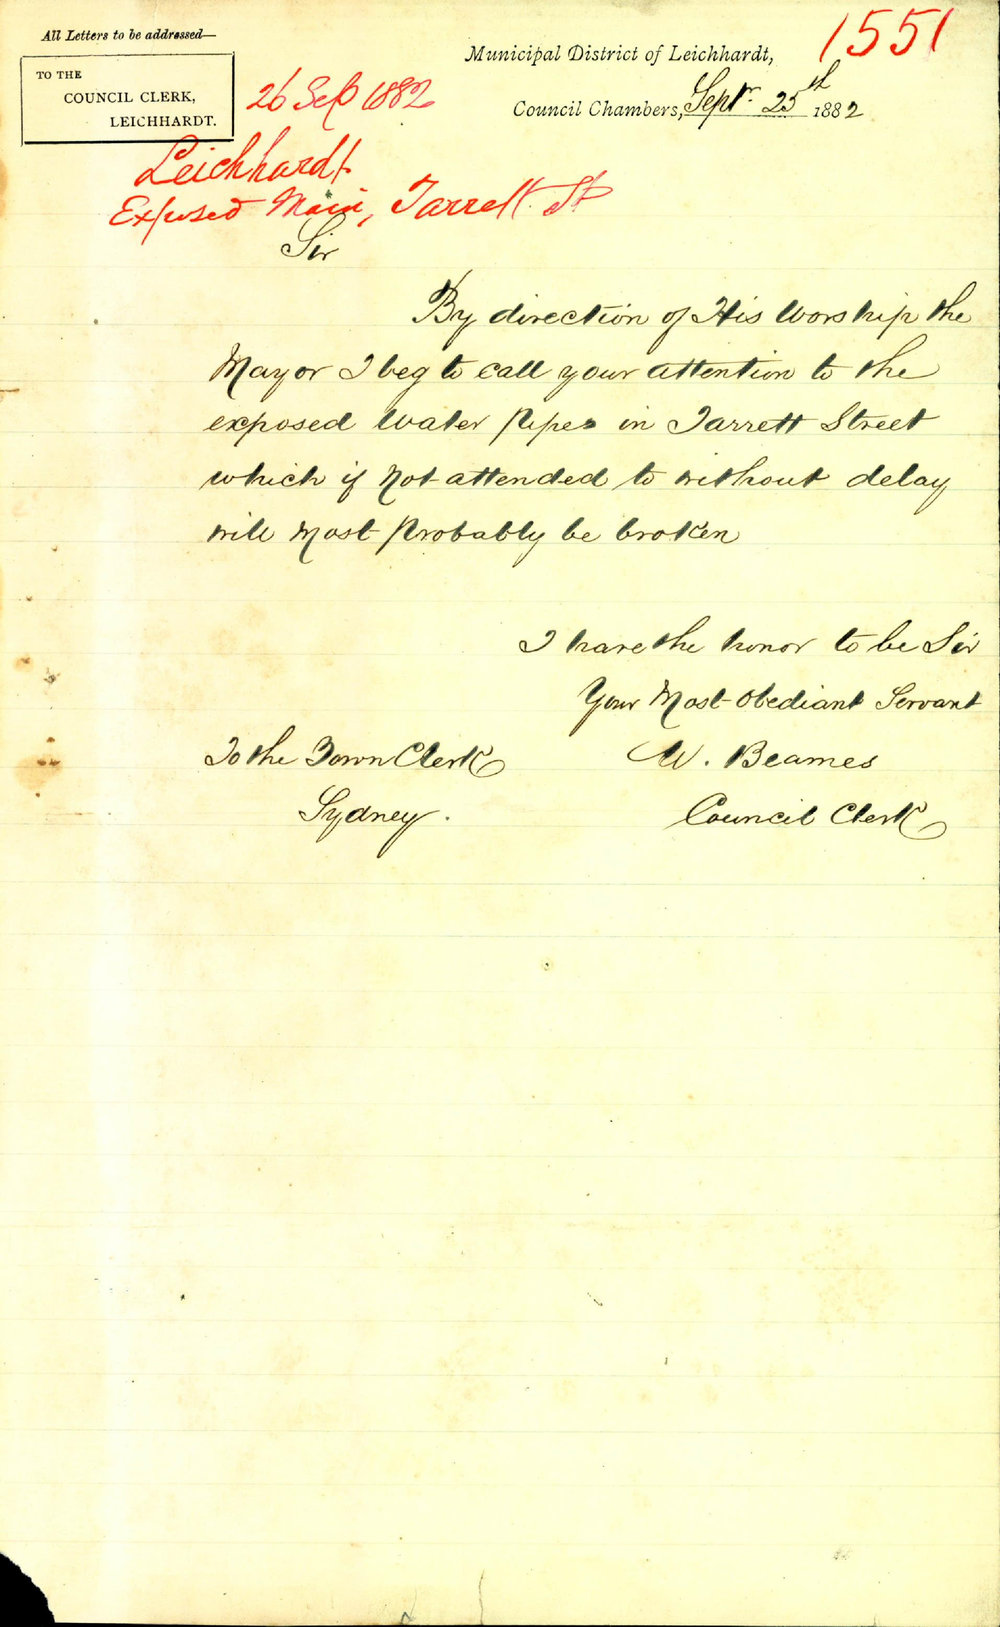 All Letters to be addressed—
TO THE
COUNCIL CLERK,
LEICHHARDT.
1551
Municipal District of Leichhardt,
Council Chambers, Septr. 25th 1882
26 Sep 1882
Leichhardt
Exposed Main, Jarrett St
Sir
By direction of His Worship the
Mayor I beg to call your attention to the
exposed Water Pipes in Jarrett Street
which if Not attended to without delay
will Most Probably be broken
I have the honor to be Sir
Your Most Obediant Servant
To the Town Clerk
Sydney.
W. Beames
Council Clerk